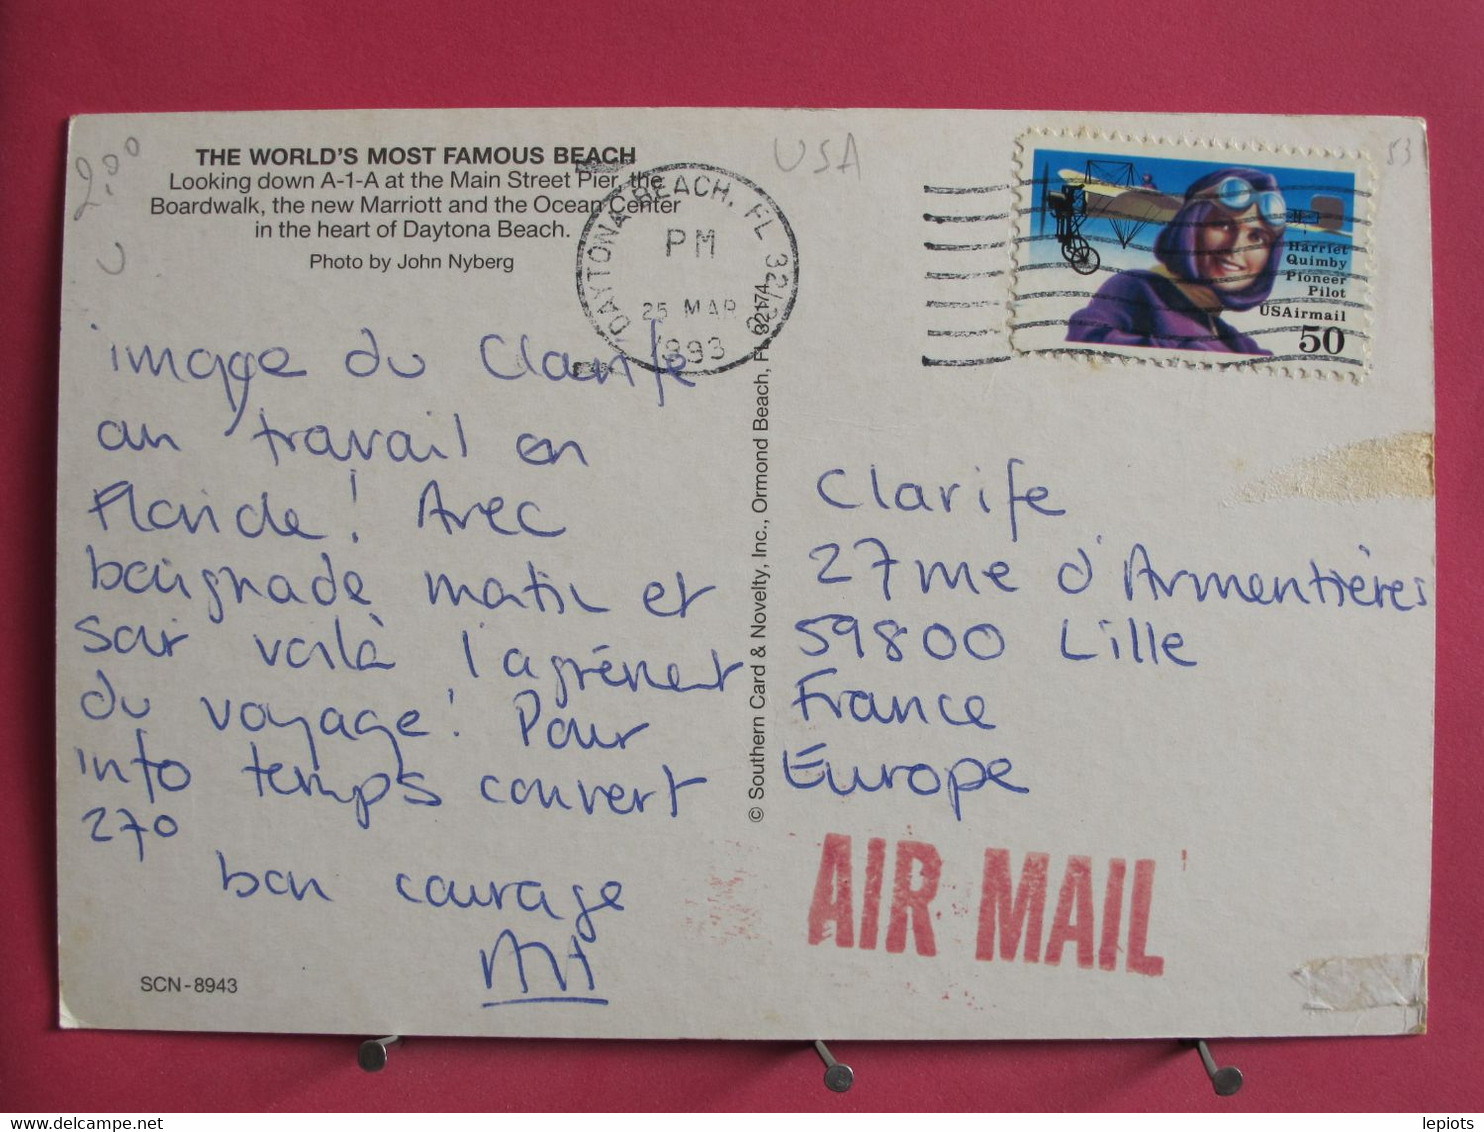 2.00
U
THE WORLD'S MOST FAMOUS BEACH
Looking down A-1-A at the Main Street Pier, the
Boardwalk, the new Marriott and the Ocean Center
in the heart of Daytona Beach.
Photo by John Nyberg
USA
53
DAYTONA BEACH, FL
PM
25 MAR
1993
Harriet
Quimby
Pioneer
Pilot
USAirmail
50
image du Clarife
au travail en
Floride ! Avec
baignade matin et
soir voilà l'agrément
du voyage ! Pour
info temps couvert
270
bon courage
© Southern Card & Novelty, Inc., Ormond Beach, FL 32174
Clarife
27 rue d'Armentières
59800 Lille
France
Europe
AIR MAIL
SCN-8943
www.delcampe.net
lepiots